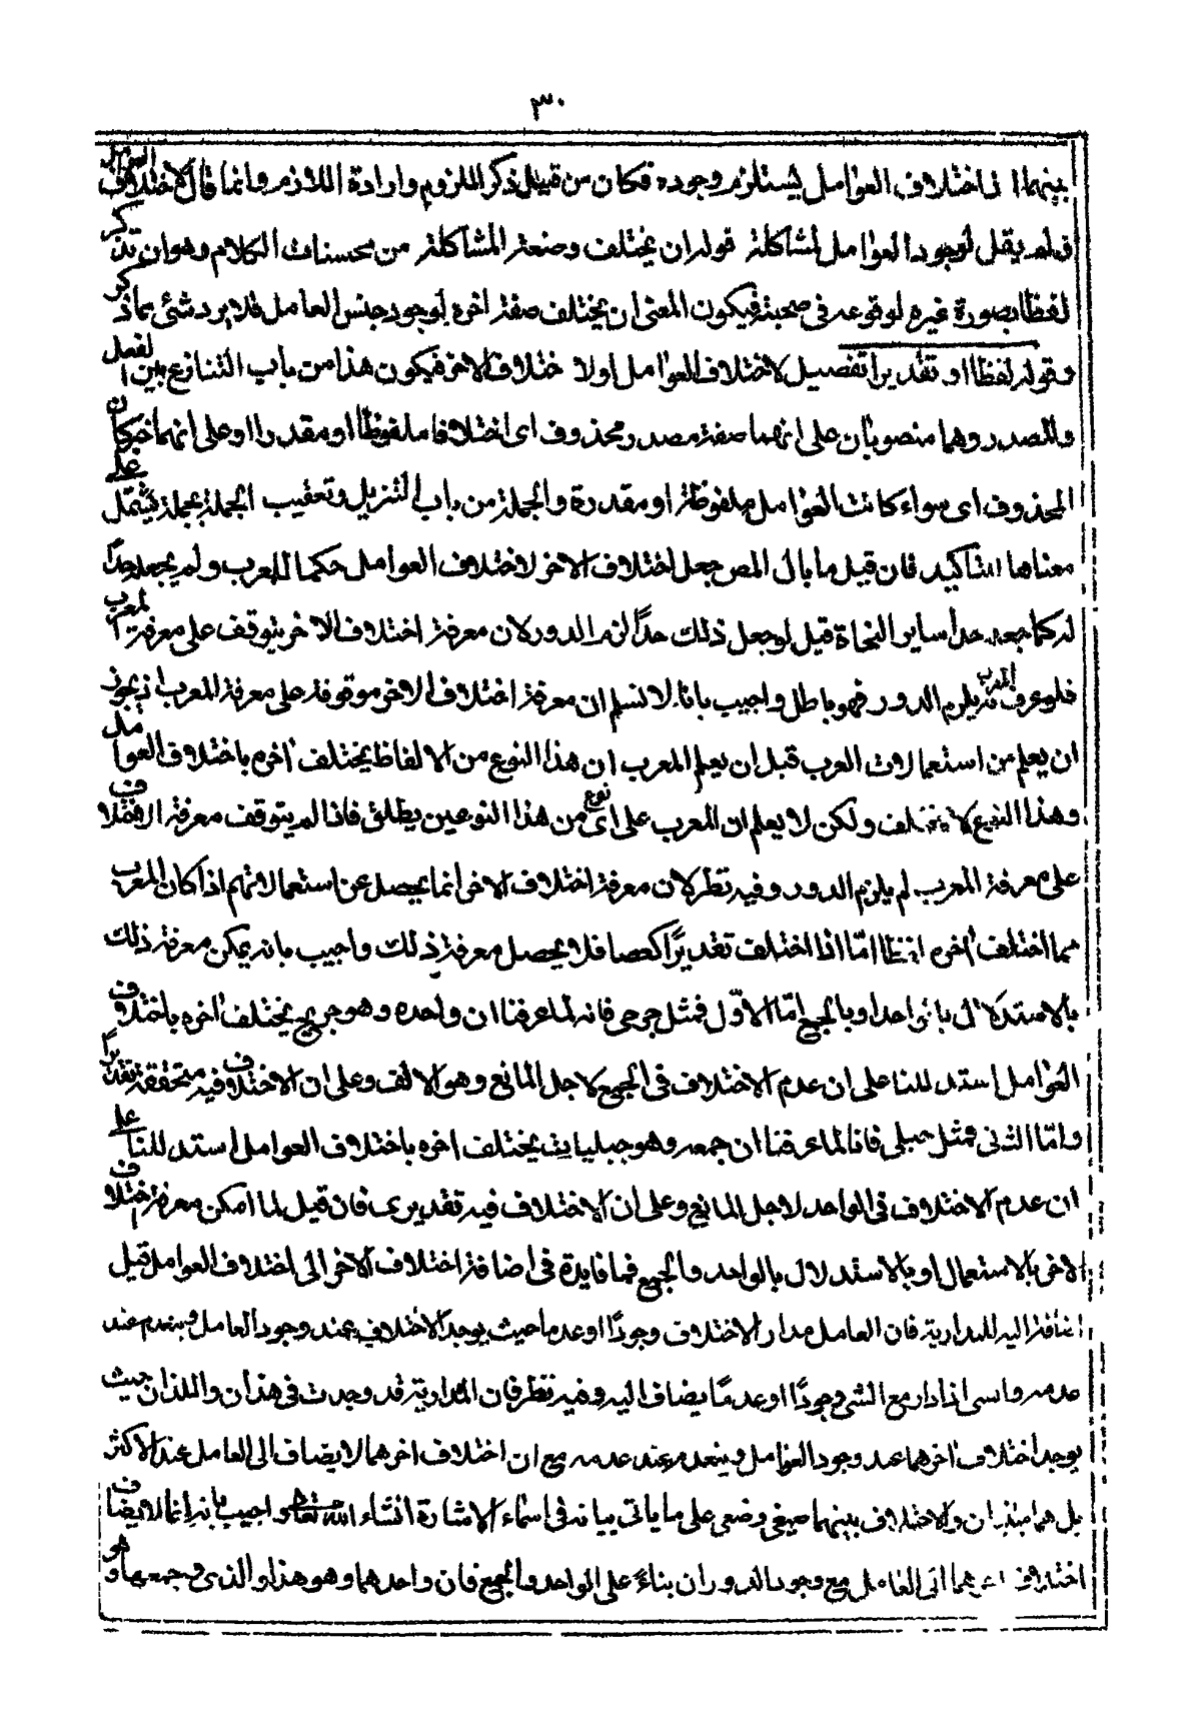 ٣٠
بينهما اذ اختلاف العوامل يستلزم وجوده فكان من قبيل ذكر الملزوم وارادة اللازم وانما قال لاختلاف العوامل
ولم يقل لوجود العوامل لمشاكلة قوله ان يختلف وصنعة المشاكلة من محسنات الكلام وهو ان تذكر
لفظا بصورة غيره لوقوعه فى صحبته فيكون المعنى ان يختلف صفة اخره لوجود جنس العامل فلا يرد شئ بما ذكر
وقوله لفظا او تقديرا تفصيل لاختلاف العوامل او لاختلاف الاخر فيكون هذا من باب التنازع بين الفعل
والمصدر وهما منصوبان على انهما صفة مصدر محذوف اى اختلافا ملفوظا او مقدرا او على انهما خبر كان
المحذوف اى سواء كانت العوامل ملفوظة او مقدرة والجملة من باب التنزيل وتعقيب الجملة بجملة يشتمل على
معناها للتاكيد فان قيل ما بال المص جعل اختلاف الاخر لاختلاف العوامل حكما للمعرب ولم يجعله حدًا
له كما جعله حدا ساير النحاة قيل لو جعل ذلك حدًا لزم الدور لان معرفة اختلاف الاخر يتوقف على معرفة المعرب
فلو عرف المعرب به يلزم الدور فهو باطل واجيب بانا لا نسلم ان معرفة اختلاف الاخر موقوفة على معرفة المعرب اذ يجوز
ان يعلم من استعمالات العرب قبل ان يعلم المعرب ان هذا النوع من الالفاظ يختلف اخره باختلاف العوامل
وهذا النوع لا يختلف ولكن لا يعلم ان المعرب على اى نوع من هذا النوعين يطلق فاذا لم يتوقف معرفة الاختلاف
على معرفة المعرب لم يلزم الدور وفيه نظر لان معرفة اختلاف الاخر انما يحصل عن استعمالاتهم اذا كان المعرب
مما اختلف اخره لفظا امّا اذا اختلف تقديرًا كعصا فلا يحصل معرفة ذلك واجيب بانه يمكن معرفة ذلك
بالاستدلال بالواحد او بالجمع امّا الاوّل فمثل جرحى فانه لما عرفنا ان واحده وهو جريح يختلف اخره باختلاف
العوامل استدللنا على ان عدم الاختلاف فى الجمع لاجل المانع وهو الالف وعلى ان الاختلاف فيه متحققة تقديرًا
وامّا الثانى فمثل حبلى فانا لما عرفنا ان جمعه وهو حبليات يختلف اخره باختلاف العوامل استدللنا على
ان عدم الاختلاف فى الواحد لاجل المانع وعلى ان الاختلاف فيه تقديرى فان قيل لما امكن معرفة اختلاف
الاخر بالاستعمال او بالاستدلال بالواحد والجمع فما فايدة فى اضافة اختلاف الاخر الى اختلاف العوامل قيل
اضافة اليه للمدارية فان العامل مدار الاختلاف وجودًا او عدما حيث يوجد الاختلاف عند وجود العامل وينعدم عند
عدمه والشى اذا دار مع الشى وجودًا او عدمًا يضاف اليه وفيه نظر فان المدارية قد وجدت فى هذان واللذان حيث
يوجد اختلاف اخرهما عند وجود العوامل وينعدم عند عدمه مع ان اختلاف اخرهما لا يضاف الى العامل عند الاكثر
بل هما مبنيان والاختلاف بينهما صيغى وضعى على ما ياتى بيانه فى اسماء الاشارة انشاء الله تعالى واجيب بانه انما لا يضاف
اختلاف اخرهما الى العامل مع وجود الدوران بناءً على الواحد والجمع فان واحدهما وهو هذا والذى وجمعهما وهو